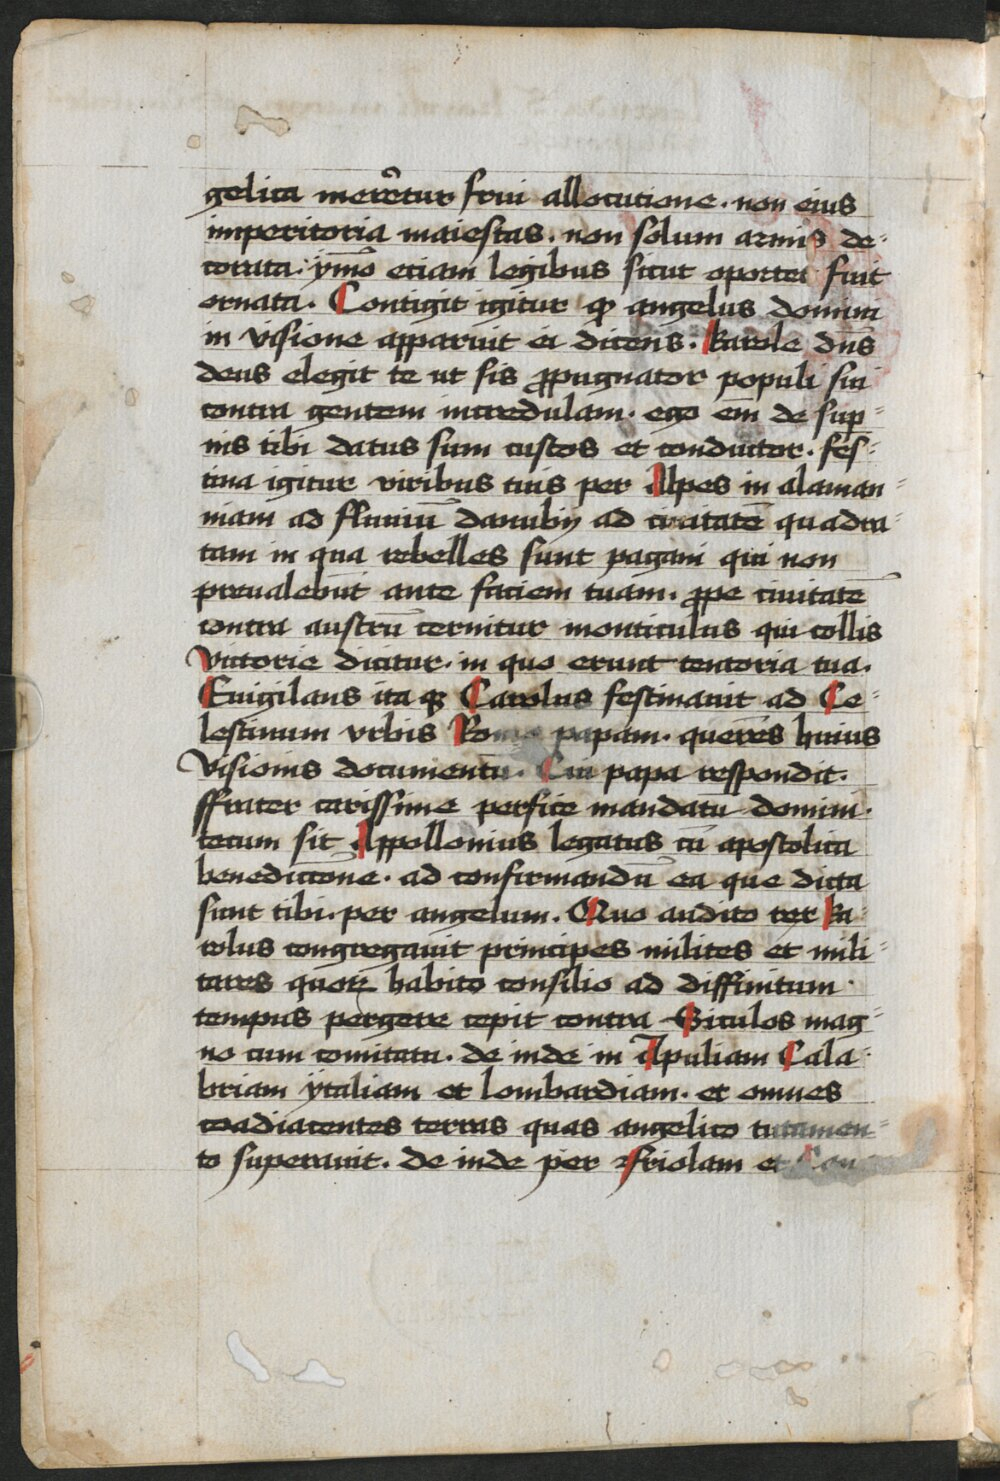 gelica merētur frui allocutione. non eius
imperitoria maiestas. non solum armis de⸗
corata. ymō etiam legibus sicut oportet fuit
ornata. Contigit igitur ꝙ angelus domini
in visione apparuit ei dicens. karole dn̄s
deus elegit te ut sis ꝓpugnator populi sui
contra gentem incredulam. ego em̄ de sup̄⸗
nis tibi datus sum custos et conductor. fes⸗
tina igitur viribus tuis per Alpes in alaman⸗
niam ad fluuiū danubij ad ciuitatē quadra⸗
tam in qua rebelles sunt pagani qui non
preualebūt ante faciem tuam. ꝓpe ciuitatē
contra austrū cernitur monticulus qui collis
victorie dicitur. in quo erunt tentoria tua.
Euigilans ita qꝫ Carolus festinauit ad Ce⸗
lestinum vrbis Rome papam. querēs huius
visionis documentū. Cui papa respondit.
ffrater carissime perfice mandatū domini.
tecum sit Appollonius legatus cū apostolica
benedictōne. ad confirmandū ea que dicta
sunt tibi. per angelum. Quo audito rex ka⸗
rolus congregauit principes milites et mili⸗
tares quoꝝ habito consilio ad diffinitum
tempus pergere cepit contra Siculos mag⸗
no cum comitatu. de inde in Apuliam Cala⸗
briam ÿtaliam et lombardiam. et omnes
coadiacentes terras quas angelico tutamen⸗
to superauit. de inde per ffriolam et